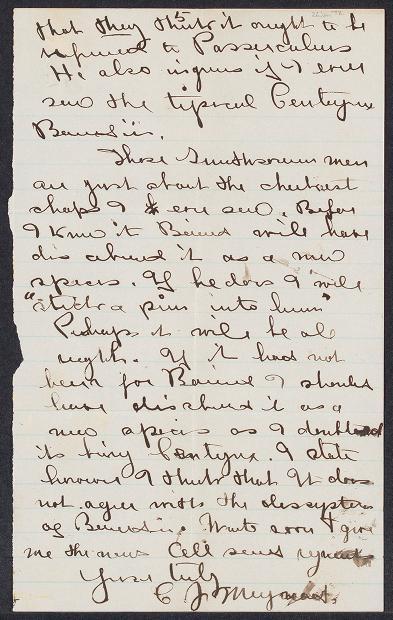 that they think it ought to be
referred to Passerculus
He also inquires if I ever
saw the typical Centronyx
Bairdii.
These Smithsonian men
are just about the
chaps I ever saw. Before
I know it Baird will have
discribed it as a new
species. If he does I will
"stick a pin into him"
Perhaps it will be all
right. If it had not
been for Baird I should
have discribed it as a
new species as I doubted
its being Centronyx. I state
however I think that It does
not agree with the description
of Bairdii. Write soon & give
me the news Cell sends
Yours truly
C J Maynard.